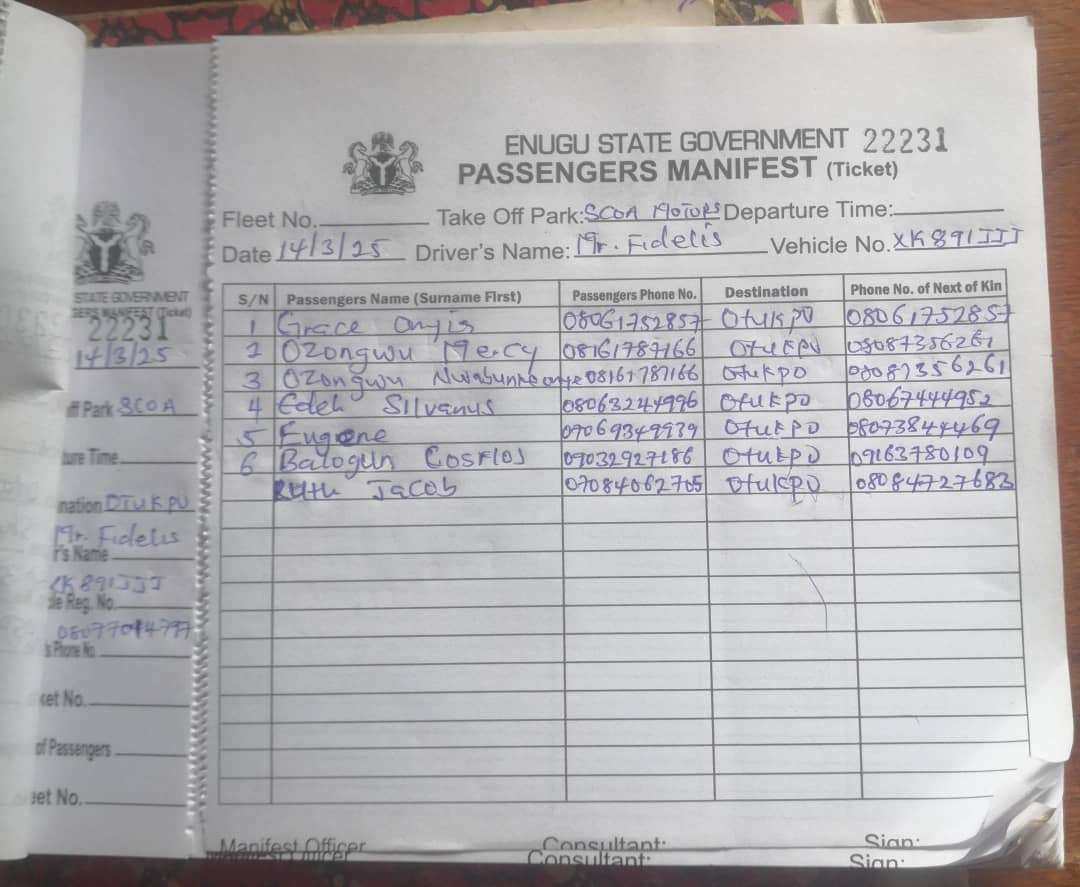 STATE GOVERNMENT
GERS MANIFEST (Ticket)
22231
14/3/25
ff Park SCOA
ture Time
nation OTUKPU
Mr. Fidelis
r's Name
XK891JJJ
le Reg. No.
s Phone No
ket No.
of Passengers
eet No.
ENUGU STATE GOVERNMENT 22231
PASSENGERS MANIFEST (Ticket)
Fleet No. Take Off Park: SCOA MOTORS Departure Time:
Date 14/3/25 Driver's Name: Mr. Fidelis Vehicle No. XK891JJJ
S/N Passengers Name (Surname First) Passengers Phone No. Destination Phone No. of Next of Kin
1 Grace 08061752857 Otukpo 08061752857
2 Ozongwu Mercy 08161787166 Otukpo 08087356261
3 Ozongwu 08161787166 Otukpo 08087356261
4 Edeh Silvanus 08063244996 Otukpo 08067444952
5 Eugene 07069349939 Otukpo 08073844469
6 Balogun 07032927186 Otukpo 09163780109
Ruth Jacob 07084062705 Otukpo 08084727683
Manifest Officer Consultant: Sign:
Consultant: Sign: